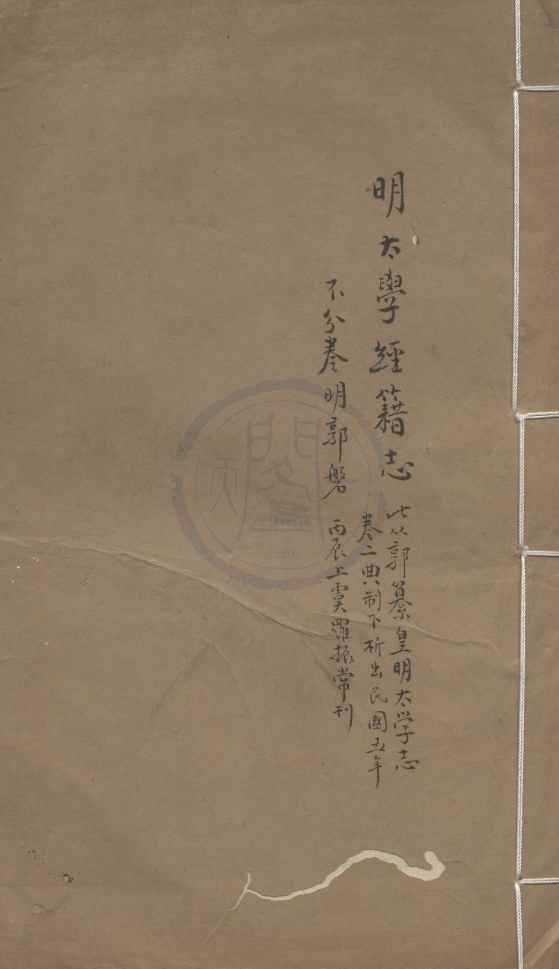 明太學經籍志
此從郭纂皇明太学志
卷二典制下析出民國五年
不分卷 明郭磐 丙辰上虞羅振常刊